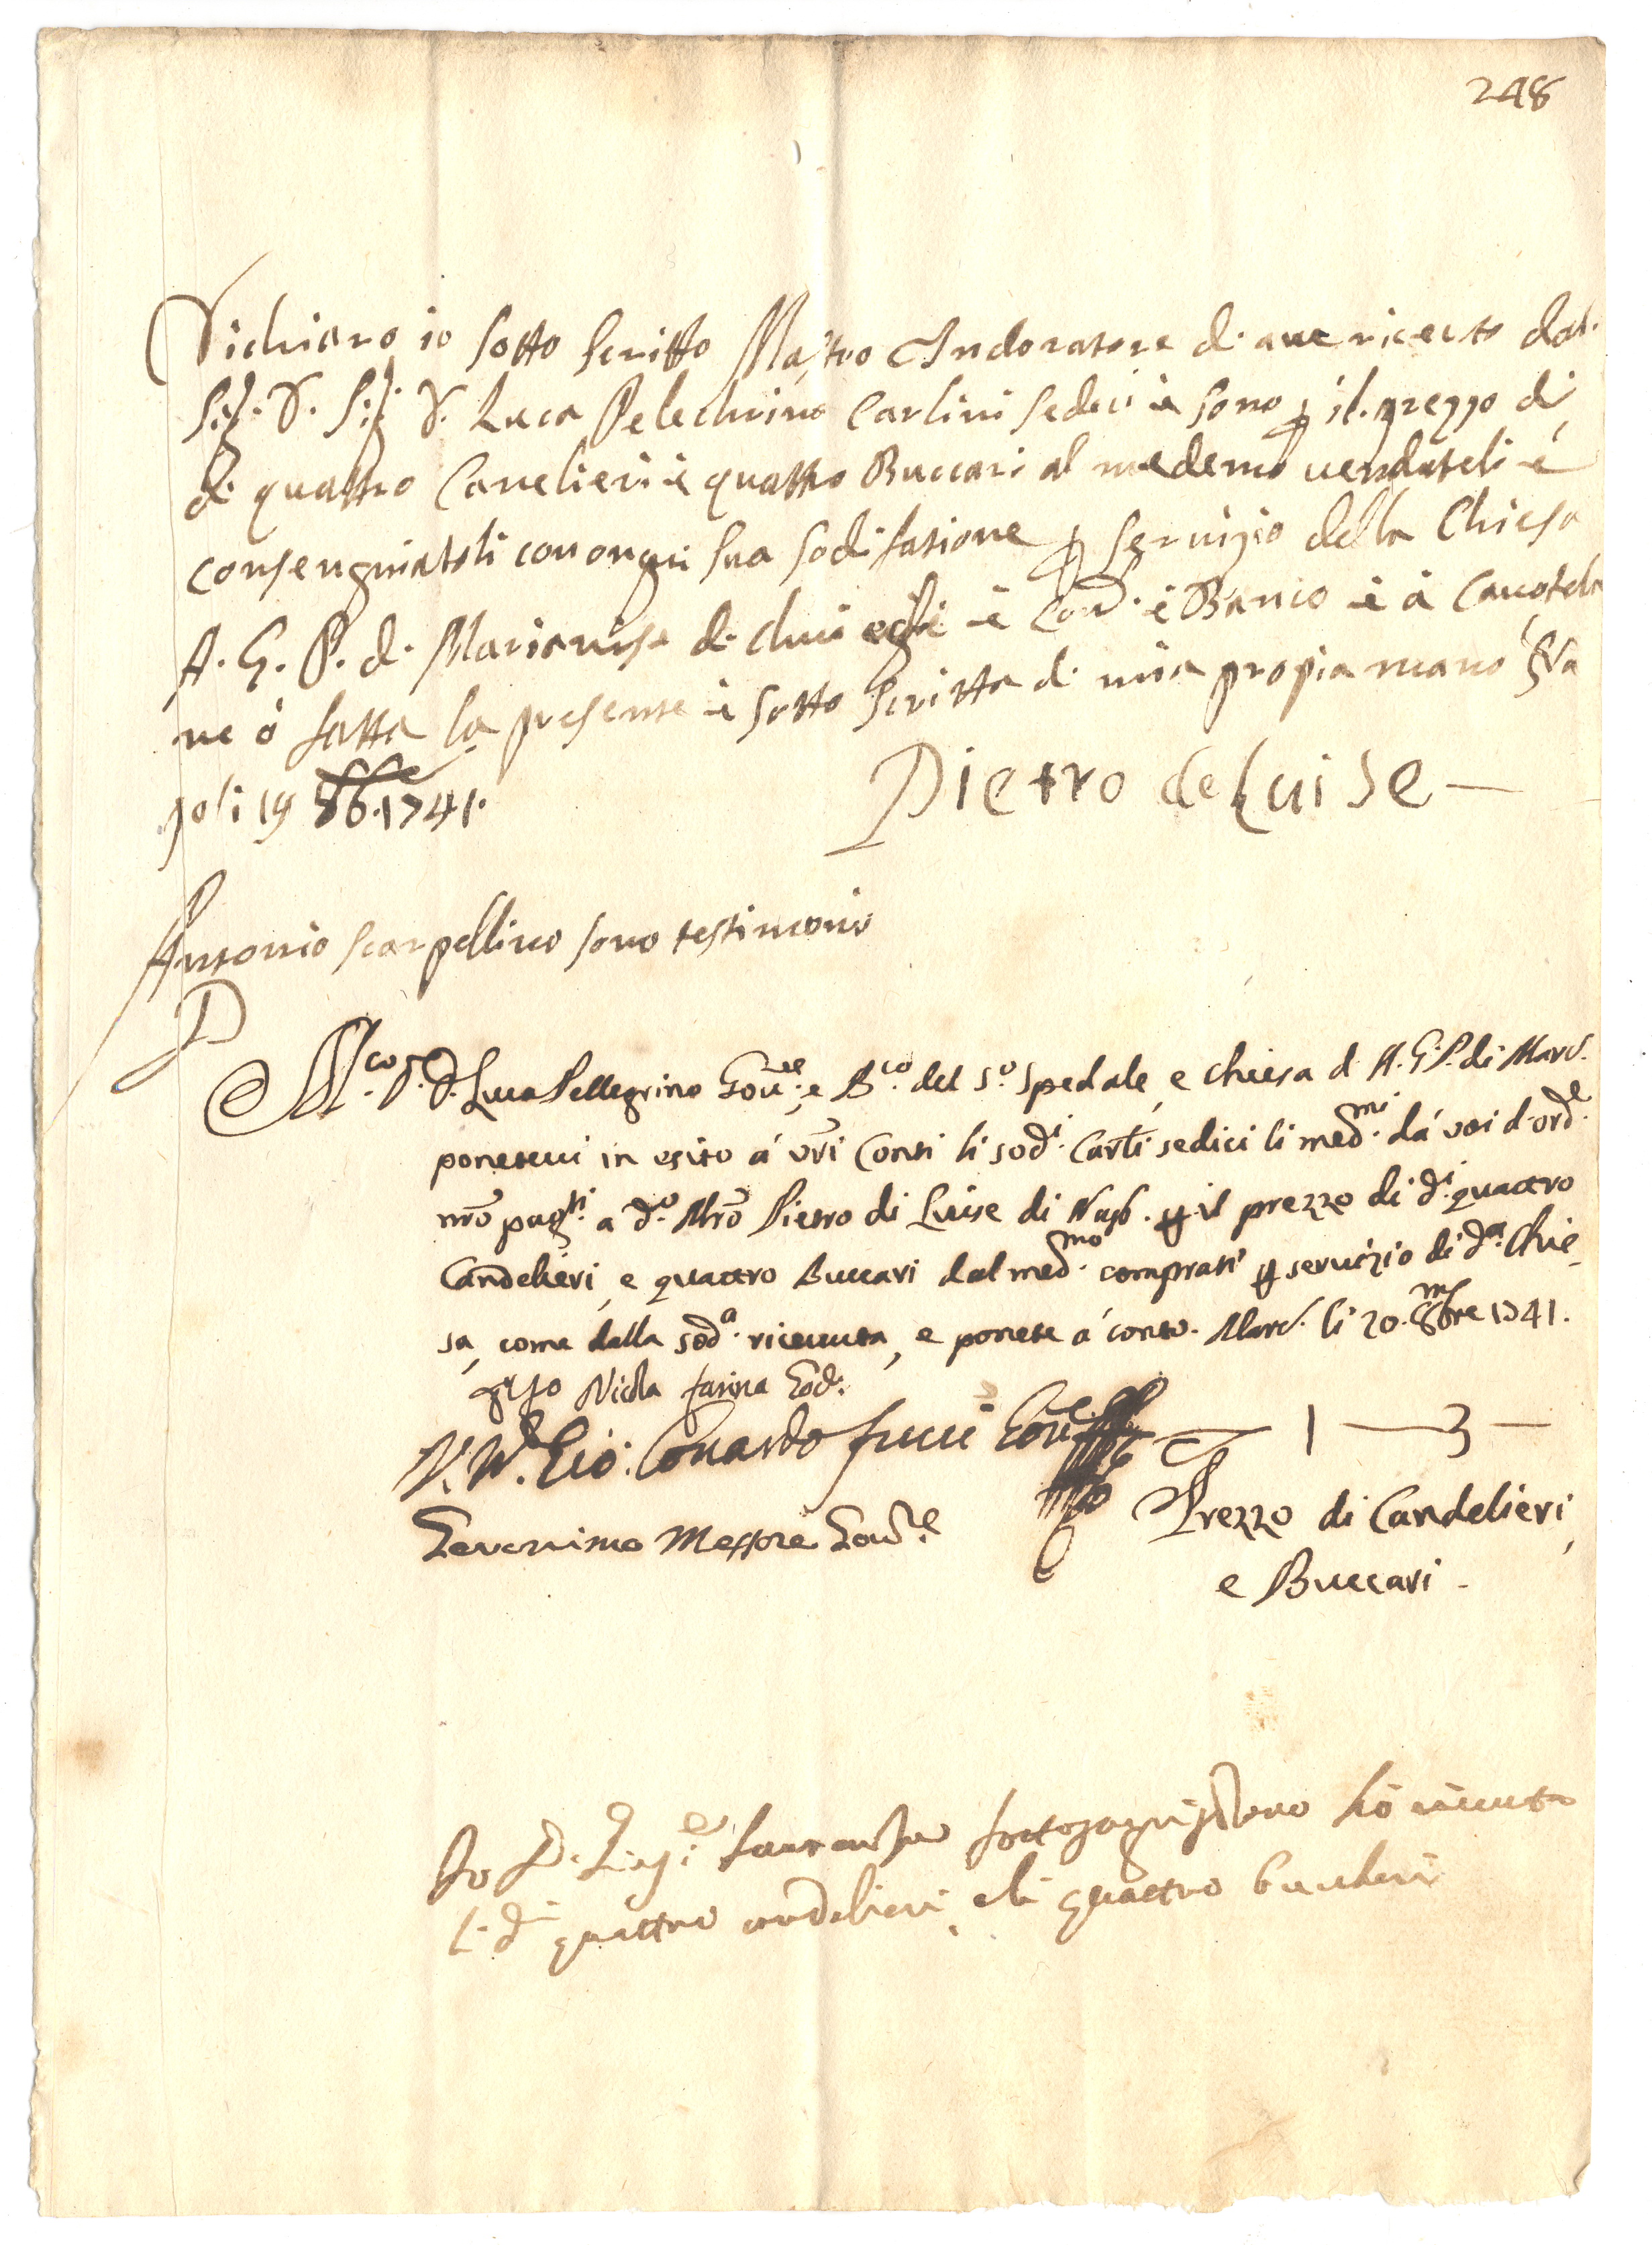 248
Dichiaro io sotto scritto Mastro Indoratore di ave riceuto dal
Sig. D. Sig. D. Luca Pelechrino Carlini sedici è sono p il prezzo di
di quattro Canelieri è quattro Buccari al medemo venduteli è
consengniateli con ongni sua sodisfatione p servizio della Chiesa
A. G. P. di Marianisa di chui è Banco è à Cauotela
ne ò fatta la presente è sotto scritta di mia propia mano Na
poli 19 1741.
Pietro de Luise
Antonio scarpellino sono testimonio
D
M.co S.r D. Luca Pellegrino Gou.re e B.co del S.o Spedale, e chiesa d A. G. P. di Marc.
ponetevi in esito à vri Conti li sod.i Carli sedici li med.mi dà voi d'ord.e
nro pag.ti a d.o Mro Pietro di Luise di Nap. p il prezzo di d.i quattro
Candelieri, e quattro Buccari dal med.mo comprati p servizio di d.a Chie_
sa, come dalla sod.a ricevuta, e ponete à conto. Marc. li 20. 8bre 1741.
Io Nicola farina God.
N. W. Gio: Conardo fucci Gou.re
— 1 — 3 —
Geronimo Messore Gou.re
Prezzo di Candelieri,
e Buccari.
Io D. sottosagristano hò ricevuto
li d.i quattro candelieri, e li quattro buccheri